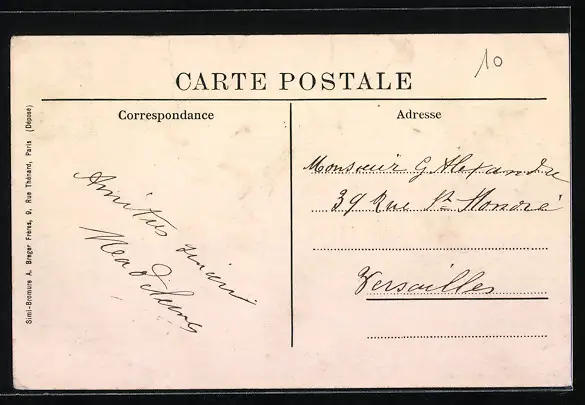 10
CARTE POSTALE
Correspondance
Adresse
Simi-Bromure A. Breger Frères, 9, Rue Thénard, Paris (Déposé)
Monsieur G Alexandre
39 Rue St Honoré
Versailles